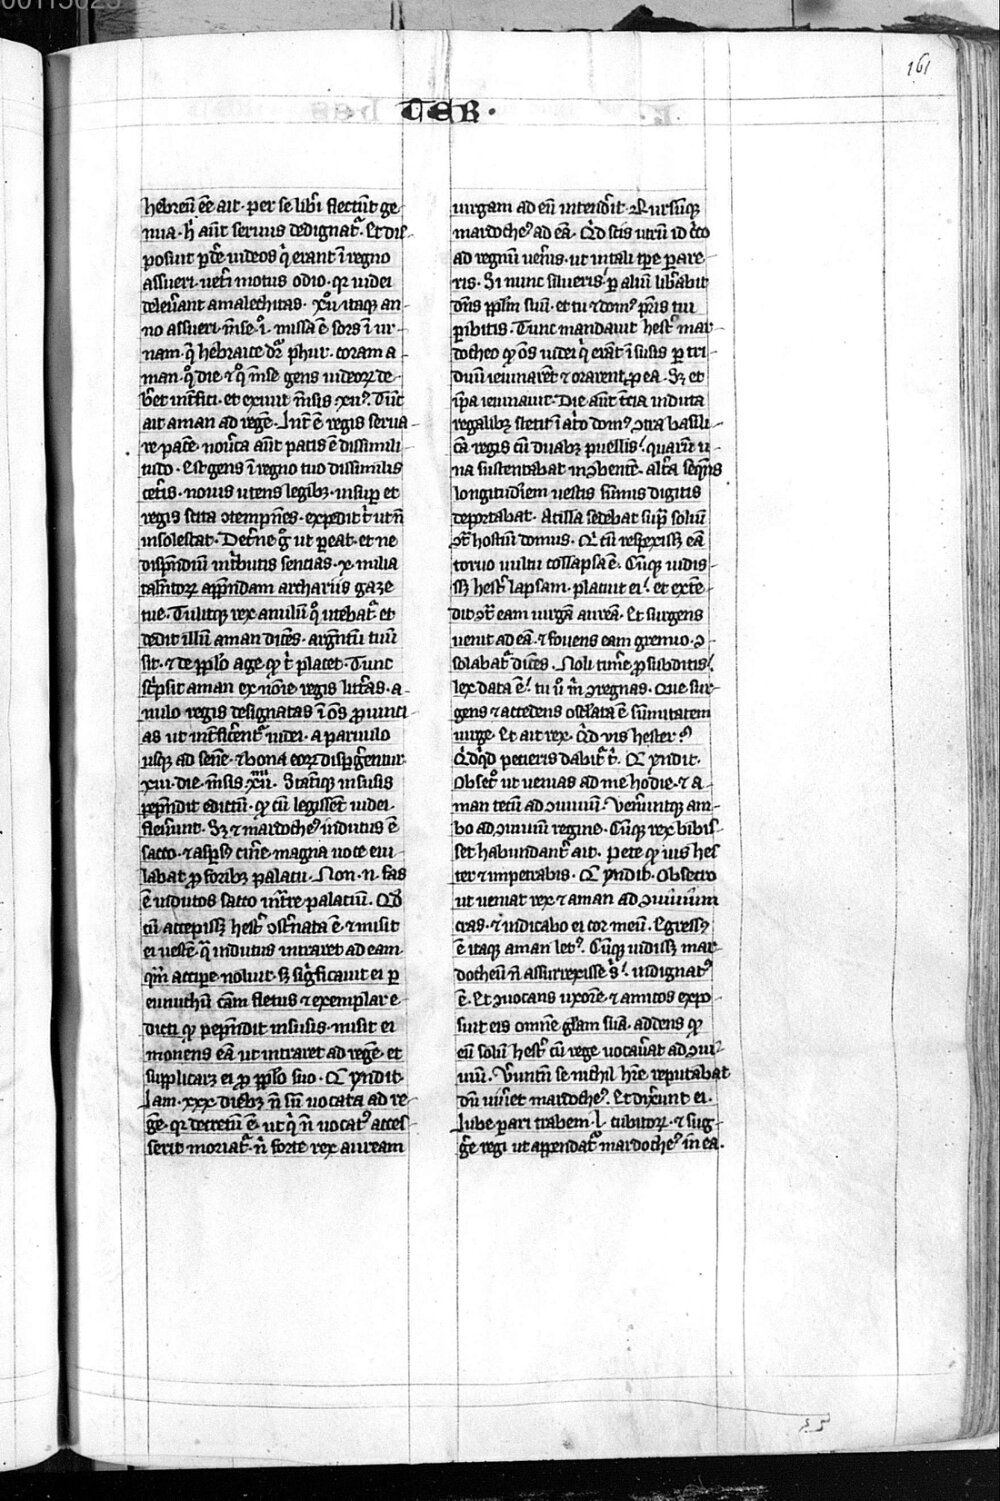 161
TER·
hebreū eē ait· per se lib̄i flectūt ge-
nua· h̓ aūt seruus dedignat᷑· Et dis-
posuit ꝑd̓e iudeos q̇ erant ī regno
assueri· uet̓i motus odio· qꝛ iudei
deleuerant amalechitas· xıı̊· itaqꝫ an-
no assueri· mēse ·ı̊· missa ē sors ī ur-
nam· q̄ hebraice dr̄ phur· coram a-
man· q̊ die ⁊ q̊ mēse gens iudeoꝝ de-
b̓et int̓fici· et exiuit mēsis xıı᷒· Tūc
ait aman ad regē· Int̓ ē regis serua-
re pacē· nouīca aūt pacis ē dissimili-
tudo· Est gens ī regno tuo dissimilis
cet̓is· nouis utens legibꝫ· insuꝑ et
regis scita ↄtempnēs· expedit t̓ ut n̄
insolescat· Dec̓ne g̊ ut ꝑeat· et ne
dispēdiū in t̓butis sencias· x· milia
talētoꝝ appēdam archariis gaze
tue· Tulitqꝫ rex anulū q̊ utebat᷑· et
dedit illū aman dicēs· argētū tuū
sit· ⁊ de pp̄lo age qd̓ t̓ placet· Tunc
sc̓psit aman ex noīe regis litt̓as· a-
nulo regis designatas ī oēs ꝓuinci-
as ut int̓ficerent᷑ iudei· a paruulo
usqꝫ ad senē· ⁊ bona eoꝝ disꝑgerentur
xııı· die· mēsis xıı̊· Statīqꝫ in susis
pepēdit edictū· qd̓ cū legissēt iudei·
fleuerunt· Sꝫ ⁊ mardoche᷒ indutus ē
sacco· ⁊ asꝑs᷒ cin̓e magna uoce eiu-
labat ꝓ foribꝫ palacii· Non· n̄· fas
ē indutos sacco int̓re palaciū· Qd̓
cū accepissꝫ hest̓ ↄst̓nata ē· ⁊ misit
ei uestē q̄ indutus intraret ad eam·
qm̄ accipe noluit· sꝫ sig̓ficauit ei ꝑ
eunuchū cām fletus ⁊ exemplar e-
dicti qd̓ pepēdit in susis· misit ei
monens eā ut intraret ad regē· et
supplicarꝫ ei ꝓ pp̄lo suo· Q̄ r̄ndit·
Iam· xxx· diebꝫ n̄ sū uocata ad re-
gē· qꝛ decretū ē· ut q̇ n̄ uocat᷒ acces-
serit moriat᷑· n̓ forte rex auream
uirgam ad eū intend̓it· Rursūqꝫ
mardoche᷒ ad eā· Qd̓ scis utrū id c̊co
ad regnū uen̓is· ut in tali tꝑe ꝑare-
ris· Si nunc silueris· ꝑ aliū lib̓abit
dn̄s pp̄lm suū· et tu ⁊ dom᷒ pr̄is tui
ꝑibitis· Tunc mandauit hest̓ mar-
docheo qd̓ oēs iudei q̇ erāt ī susis ꝑ tri-
duū ieiunarēt ⁊ orarent ꝓ ea· sꝫ et
ip̄a ieiunauit· Die aūt t̓cia induta
regalibꝫ stetit ī at̓o dom᷒ ↄtra basili-
cā regis cū duabꝫ puellis· quarū u-
na sustentabat incedentē· alt̓a seq̄ns
longitudīem uestis sūmis digitis
deportabat· At illa sedebat sup̄ soliū
ↄt̓ hostiū domus· Q̓ cū respexissꝫ eā
toruo uultu collapsa ē· Cūqꝫ uidis-
sꝫ hest̓ lapsam· placuit ei· et extē-
dit ↄt̓ eam uirgā aureā· Et surgens
uenit ad eā· ⁊ fouens eam gremio· ↄ-
solabat᷑ dicēs· Noli tim̓e ꝓ subditis·
lex data ē· tu ů m̓ ↄregnas· Que sur-
gens ⁊ accedens osc̄lata ē sūmitatem
uirge· Et ait rex· Qd̓ vis hester?
Qd̓qd̓ pecieris dabit᷑ t̓· Q̄ r̄ndit·
Obsec̊ ut uenias ad me hodie· ⁊ a-
man tecū ad ↄuiuiū· Venerūtqꝫ am-
bo ad ↄuiuiū regine· Cūqꝫ rex bibis-
set habundant̓ ait· Pete qd̓ uis hes-
ter ⁊ impetrabis· Q̄ r̄ndit· Obsecro
ut ueniat rex ⁊ aman ad ↄuiuiū
cras· ⁊ indicabo ei cor meū· Egress᷒
ē itaqꝫ aman let᷒· Cūqꝫ uidissꝫ mar-
docheū n̄ assurrexisse s̓· indignat᷒
ē· Et ↄuocans uxorē ⁊ amicos expo-
suit eis omnē gl̄am suā· addens qd̓
eū solū hest̓ cū rege uocauerat ad ↄui-
uiū· Verūtn̄ se nichil hr̄e reputabat
dū uiueret mardoche᷒· Et dixerunt ei·
Iube ꝑari trabem· l· cubitoꝝ· ⁊ sug-
g̓e regi ut appendat᷑ mardoche᷒ in ea·